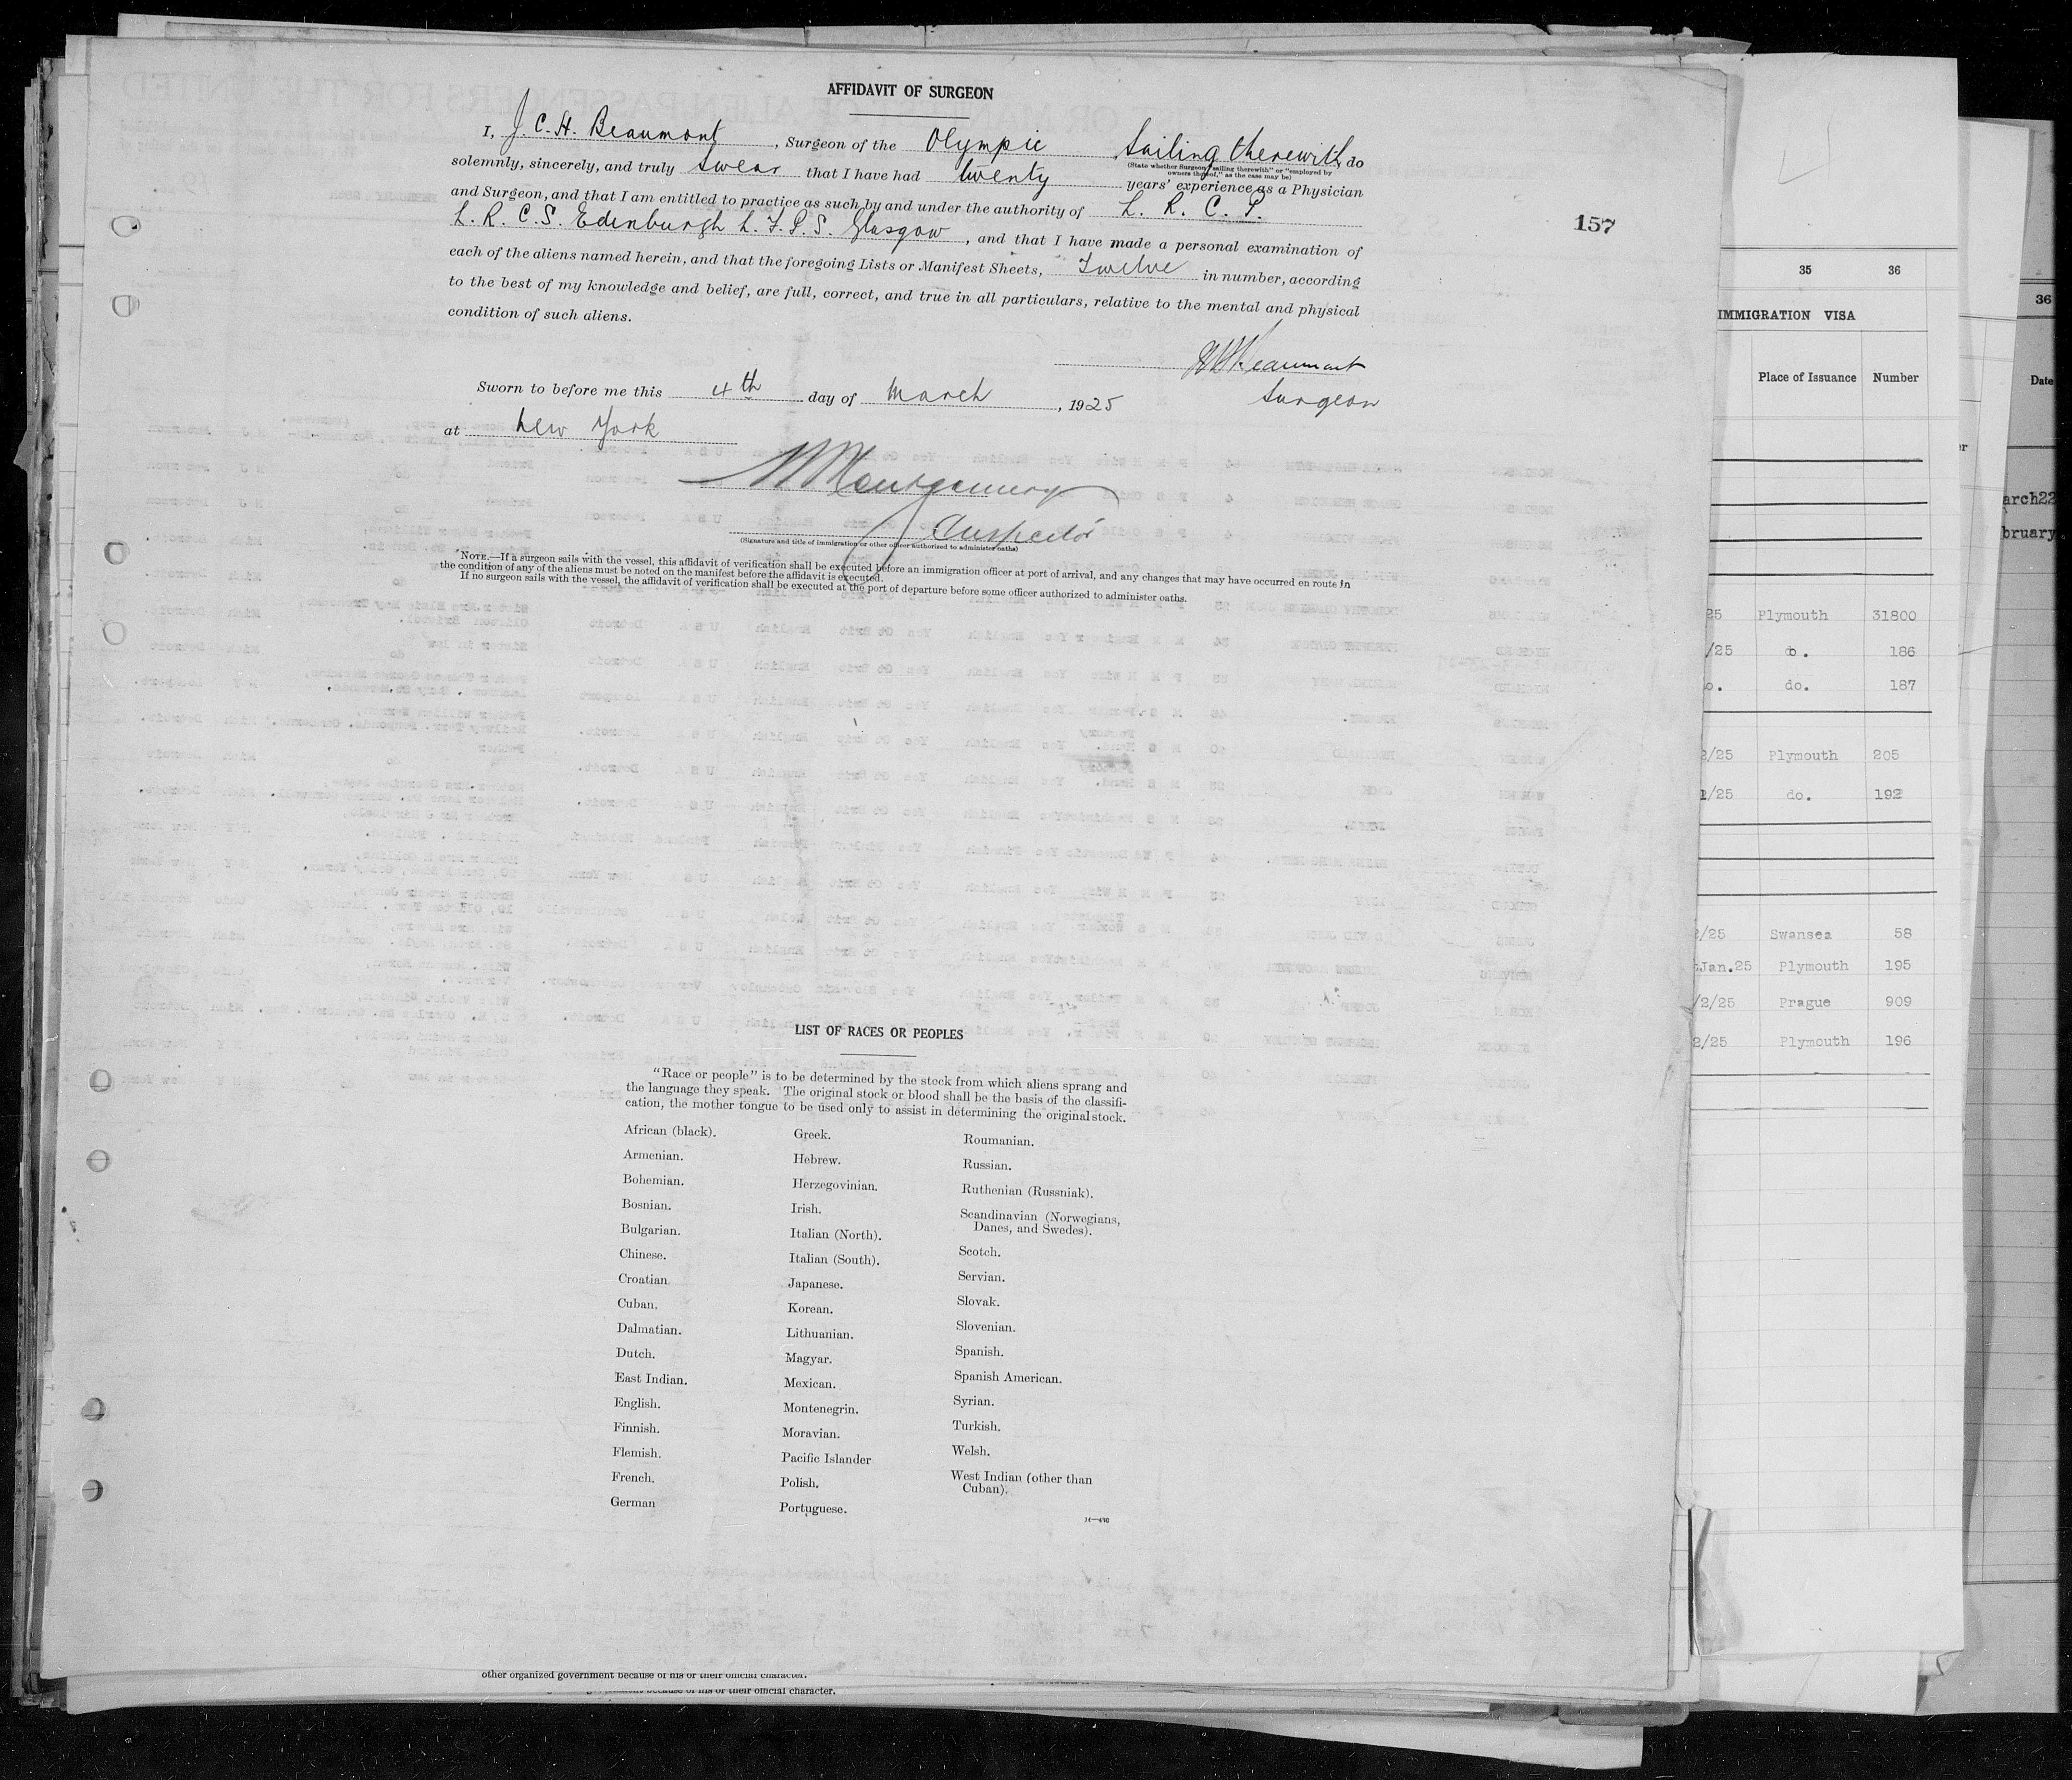 AFFIDAVIT OF SURGEON
I, J. C. H. Beaumont, Surgeon of the Olympic Sailing therewith, do
(State whether Surgeon "sailing therewith" or "employed by
owners thereof," as the case may be)
solemnly, sincerely, and truly swear that I have had twenty years' experience as a Physician
and Surgeon, and that I am entitled to practice as such by and under the authority of L. R. C. P.
L. R. C. S. Edinburgh L. F. P. S. Glasgow, and that I have made a personal examination of
each of the aliens named herein, and that the foregoing Lists or Manifest Sheets, Twelve in number, according
to the best of my knowledge and belief, are full, correct, and true in all particulars, relative to the mental and physical
condition of such aliens.
Beaumont
Surgeon
Sworn to before me this 4th day of March, 1925
at New York
Montgomery
Inspector
(Signature and title of immigration or other officer authorized to administer oaths)
NOTE.—If a surgeon sails with the vessel, this affidavit of verification shall be executed before an immigration officer at port of arrival, and any changes that may have occurred en route in
the condition of any of the aliens must be noted on the manifest before the affidavit is executed.
If no surgeon sails with the vessel, the affidavit of verification shall be executed at the port of departure before some officer authorized to administer oaths.
157
LIST OF RACES OR PEOPLES
"Race or people" is to be determined by the stock from which aliens sprang and
the language they speak. The original stock or blood shall be the basis of the classifi-
cation, the mother tongue to be used only to assist in determining the original stock.
African (black).
Armenian.
Bohemian.
Bosnian.
Bulgarian.
Chinese.
Croatian
Cuban.
Dalmatian.
Dutch.
East Indian.
English.
Finnish.
Flemish.
French.
German
Greek.
Hebrew.
Herzegovinian.
Irish.
Italian (North).
Italian (South).
Japanese.
Korean.
Lithuanian.
Magyar.
Mexican.
Montenegrin.
Moravian.
Pacific Islander
Polish.
Portuguese.
Roumanian.
Russian.
Ruthenian (Russniak).
Scandinavian (Norwegians,
Danes, and Swedes).
Scotch.
Servian.
Slovak.
Slovenian.
Spanish.
Spanish American.
Syrian.
Turkish.
Welsh.
West Indian (other than
Cuban).
other organized government because of his or their official character.
because of his or their official character.
35 36
IMMIGRATION VISA
Place of Issuance Number
25 Plymouth 31800
/25 do. 186
do. 187
2/25 Plymouth 205
/25 do. 192
2/25 Swansea 58
Jan.25 Plymouth 195
/2/25 Prague 909
2/25 Plymouth 196
36
Date
arch22
bruary